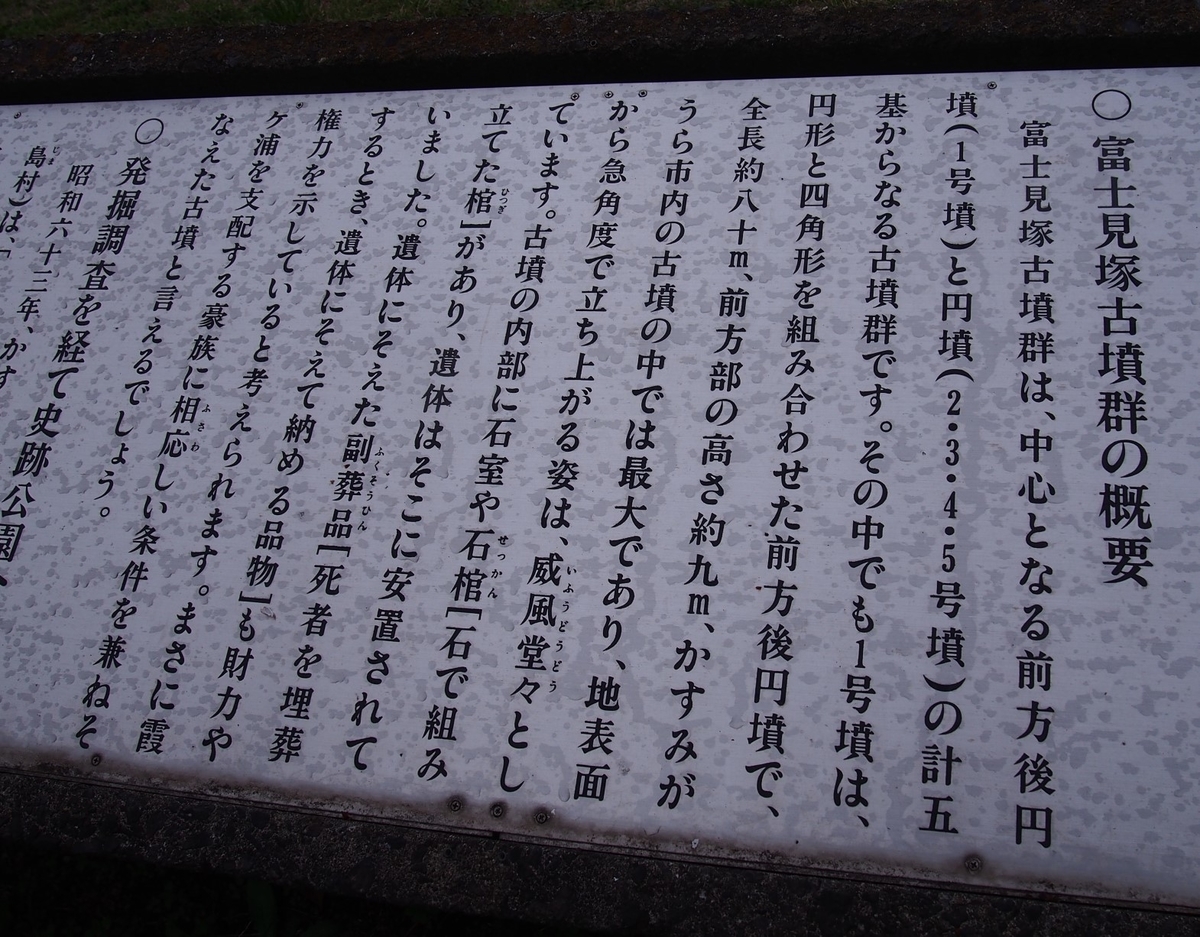 ○富士見塚古墳群の概要
富士見塚古墳群は、中心となる前方後円
墳(1号墳)と円墳(2・3・4・5号墳)の計五
基からなる古墳群です。その中でも1号墳は、
円形と四角形を組み合わせた前方後円墳で、
全長約八十m、前方部の高さ約九m、かすみが
うら市内の古墳の中では最大であり、地表面
から急角度で立ち上がる姿は、威風堂々とし
ています。古墳の内部に石室や石棺[石で組み
立てた棺]があり、遺体はそこに安置されて
いました。遺体にそえた副葬品[死者を埋葬
するとき、遺体にそえて納める品物]も財力や
権力を示していると考えられます。まさに霞
ケ浦を支配する豪族に相応しい条件を兼ねそ
なえた古墳と言えるでしょう。
○発掘調査を経て史跡公園、
昭和六十三年、かす
島村)は、「